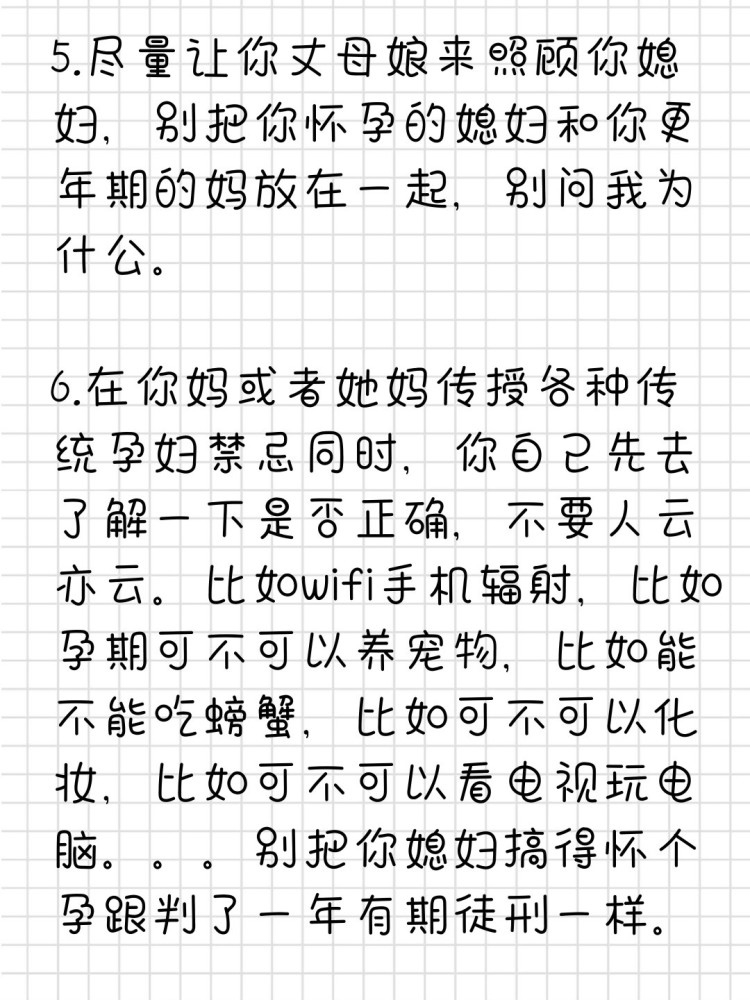 5.尽量让你丈母娘来照顾你媳
妇，别把你怀孕的媳妇和你更
年期的妈放在一起，别问我为
什公。
6.在你妈或者她妈传授各种传
统孕妇禁忌同时，你自己先去
了解一下是否正确，不要人云
亦云。比如wifi手机辐射，比如
孕期可不可以养宠物，比如能
不能吃螃蟹，比如可不可以化
妆，比如可不可以看电视玩电
脑。。。别把你媳妇搞得怀个
孕跟判了一年有期徒刑一样。